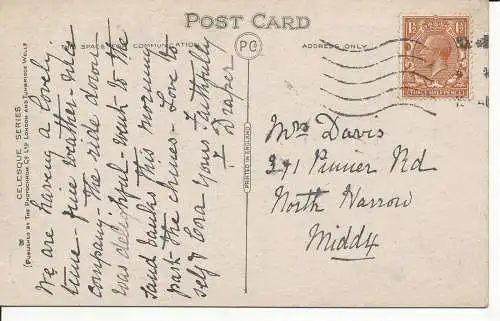 POST CARD
THIS SPACE FOR COMMUNICATION
ADDRESS ONLY
We are having a lovely
time - fine weather - nice
company. The ride down
was delightful - went to the
Sand banks this morning
past the chines - Love to
self & Cora yours Faithfully
I Draper
Mrs Davis
391 Pinner Rd
North Harrow
Middx
CELESQUE SERIES
(PUBLISHED BY THE PHOTOCHROM CO LTD LONDON AND TUNBRIDGE WELLS
PRINTED IN ENGLAND
PCo
1½
1½
THREE HALFPENCE